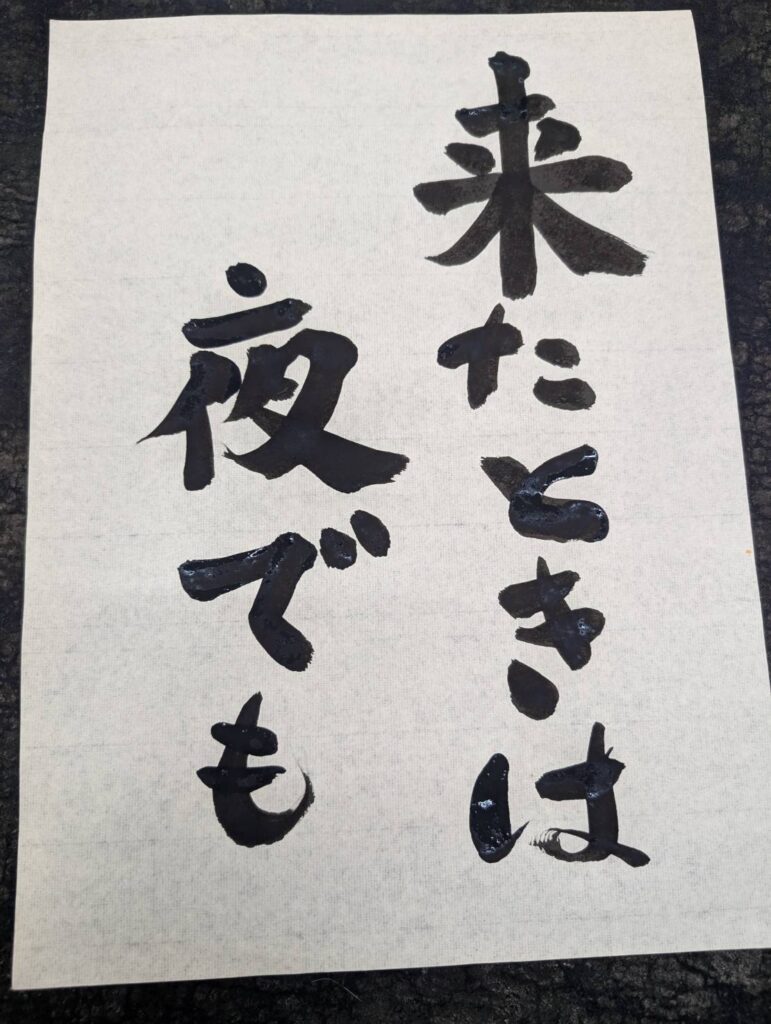 来たときは
夜でも